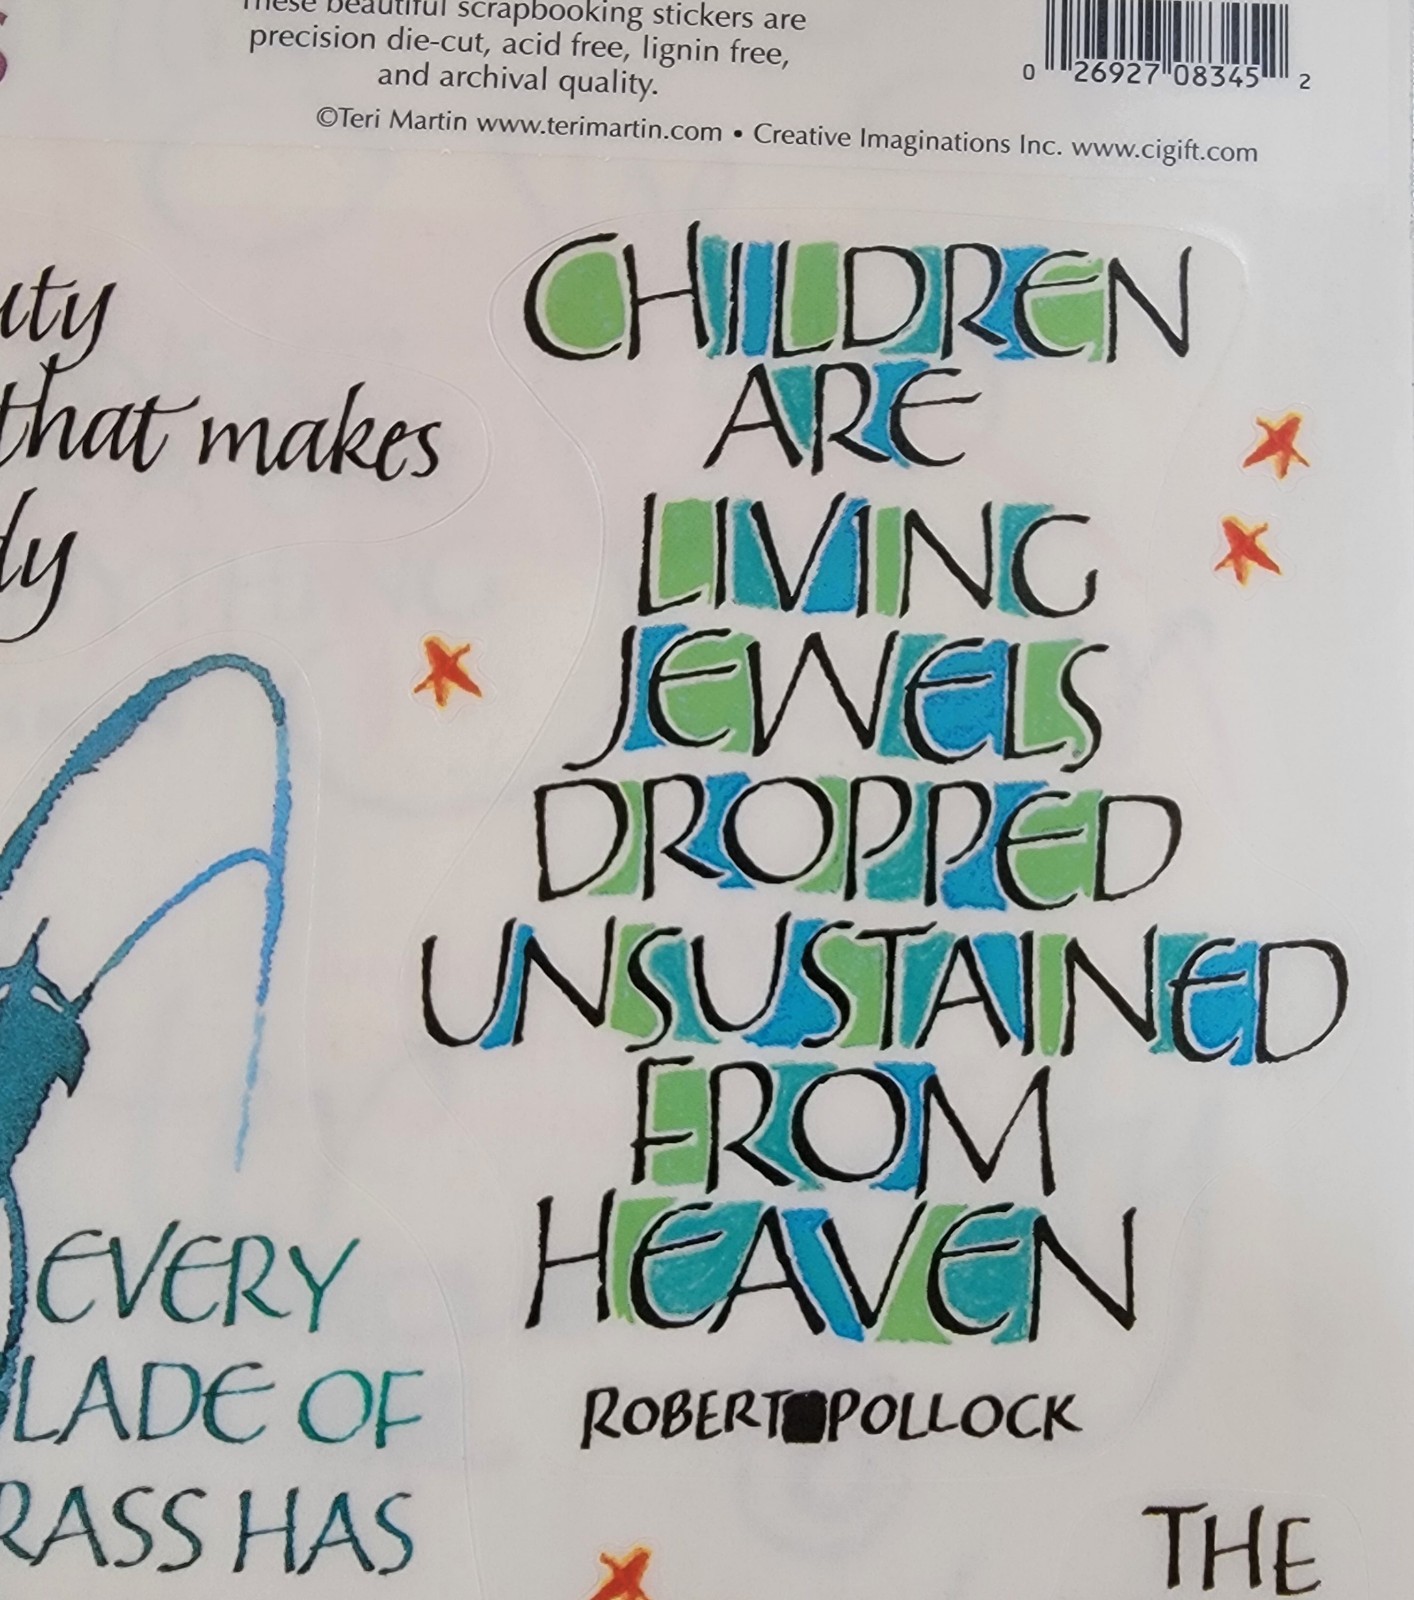 These beautiful scrapbooking stickers are
precision die-cut, acid free, lignin free,
and archival quality.
©Teri Martin www.terimartin.com • Creative Imaginations Inc. www.cigift.com
0 26927 08345 2
that makes
CHILDREN
ARE
LIVING
JEWELS
DROPPED
UNSUSTAINED
FROM
HEAVEN
ROBERT POLLOCK
EVERY
LADE OF
RASS HAS
THE